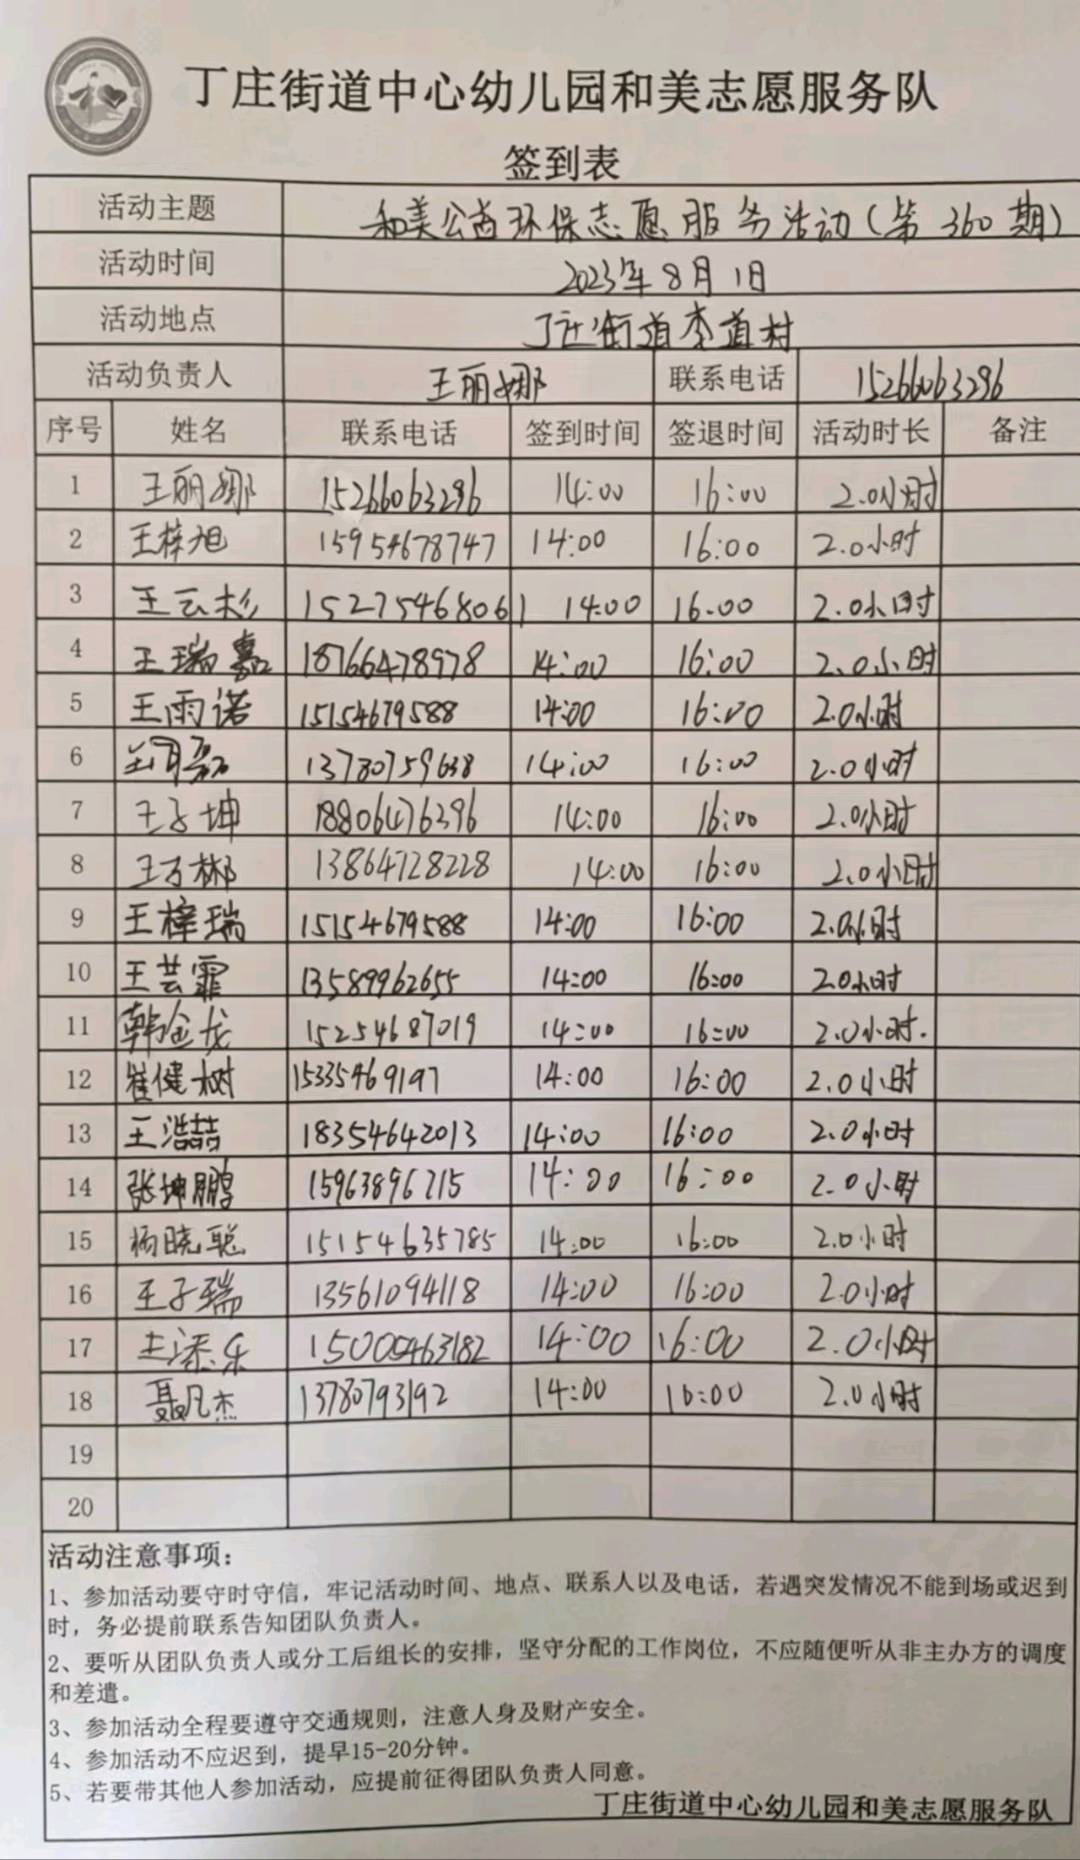 丁庄街道中心幼儿园和美志愿服务队
签到表
活动主题 和美公益环保志愿服务活动(第360期)
活动时间 2023年8月1日
活动地点 丁庄街道李道村
活动负责人 王丽娜 联系电话 15266063296
序号 姓名 联系电话 签到时间 签退时间 活动时长 备注
1 王丽娜 15266063296 14:00 16:00 2.0小时
2 王梓旭 15954678747 14:00 16:00 2.0小时
3 王云杉 15275468061 14:00 16:00 2.0小时
4 王瑞嘉 18766478978 14:00 16:00 2.0小时
5 王雨诺 15154679588 14:00 16:00 2.0小时
6 14:00 16:00 2.0小时
7 王子坤 18806476396 14:00 16:00 2.0小时
8 王子彬 13864728228 14:00 16:00 2.0小时
9 王梓瑞 15154679588 14:00 16:00 2.0小时
10 王芸霏 13589962655 14:00 16:00 2.0小时
11 韩金龙 15254687019 14:00 16:00 2.0小时.
12 崔健树 15335469197 14:00 16:00 2.0小时
13 王浩喆 18354642013 14:00 16:00 2.0小时
14 张坤鹏 15963896215 14:00 16:00 2.0小时
15 杨晓聪 15154635785 14:00 16:00 2.0小时
16 王子瑞 13561094118 14:00 16:00 2.0小时
17 王添乐 15000463182 14:00 16:00 2.0小时
18 聂凡杰 13780793192 14:00 16:00 2.0小时
19
20
活动注意事项：
1、参加活动要守时守信，牢记活动时间、地点、联系人以及电话，若遇突发情况不能到场或迟到
时，务必提前联系告知团队负责人。
2、要听从团队负责人或分工后组长的安排，坚守分配的工作岗位，不应随便听从非主办方的调度
和差遣。
3、参加活动全程要遵守交通规则，注意人身及财产安全。
4、参加活动不应迟到，提早15-20分钟。
5、若要带其他人参加活动，应提前征得团队负责人同意。
丁庄街道中心幼儿园和美志愿服务队